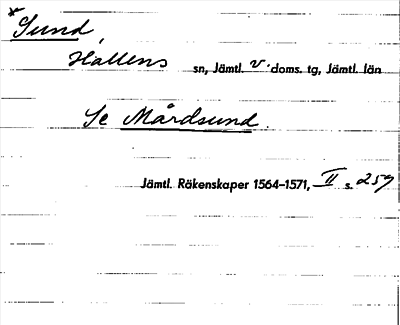 * Sund,
Hallens sn, Jämtl. v. doms. tg, Jämtl. län
Se Mårdsund.
Jämtl. Räkenskaper 1564–1571, II s. 257